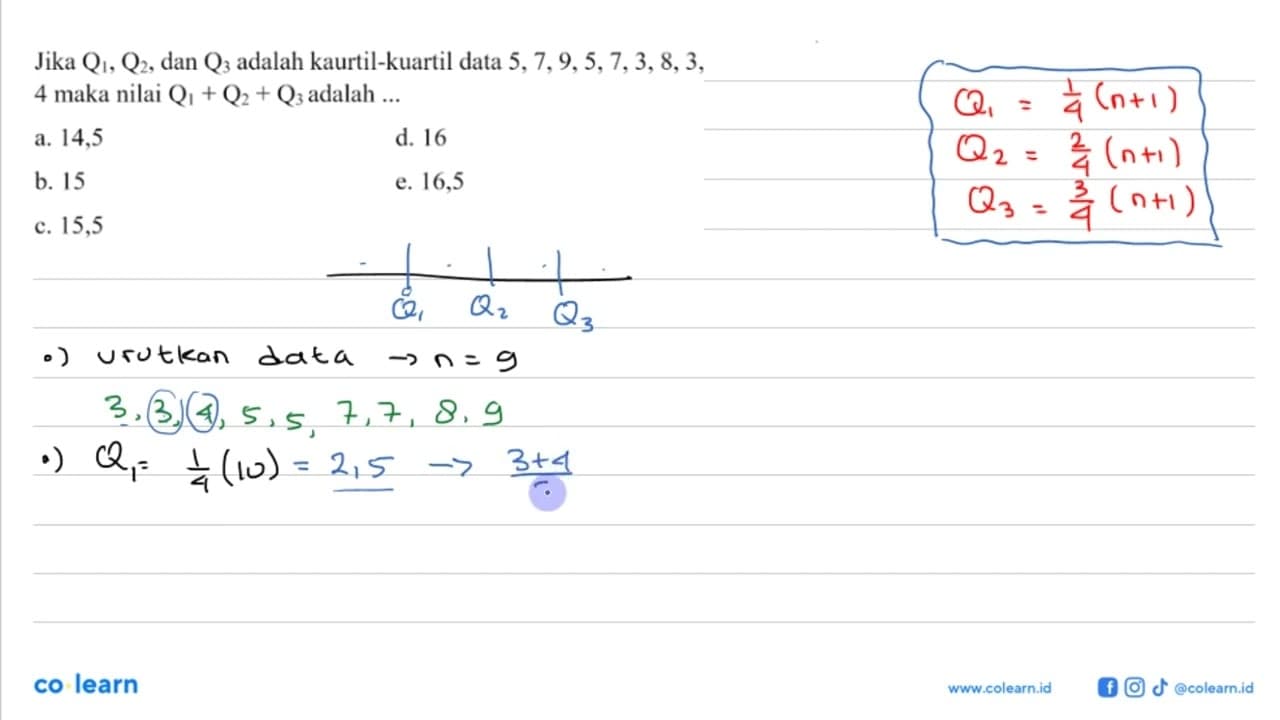 Jika Q₁, Q₂, dan Q₃ adalah kaurtil-kuartil data 5, 7, 9, 5, 7, 3, 8, 3,
4 maka nilai Q₁ + Q₂ + Q₃ adalah ...
a. 14,5
d. 16
b. 15
e. 16,5
c. 15,5
Q₁ = 1/4 (n+1)
Q₂ = 2/4 (n+1)
Q₃ = 3/4 (n+1)
Q₁ Q₂ Q₃
•) urutkan data → n = 9
3, 3, 4, 5, 5, 7, 7, 8, 9
•) Q₁ = 1/4 (10) = 2,5 → 3+4
co learn
www.colearn.id
@colearn.id